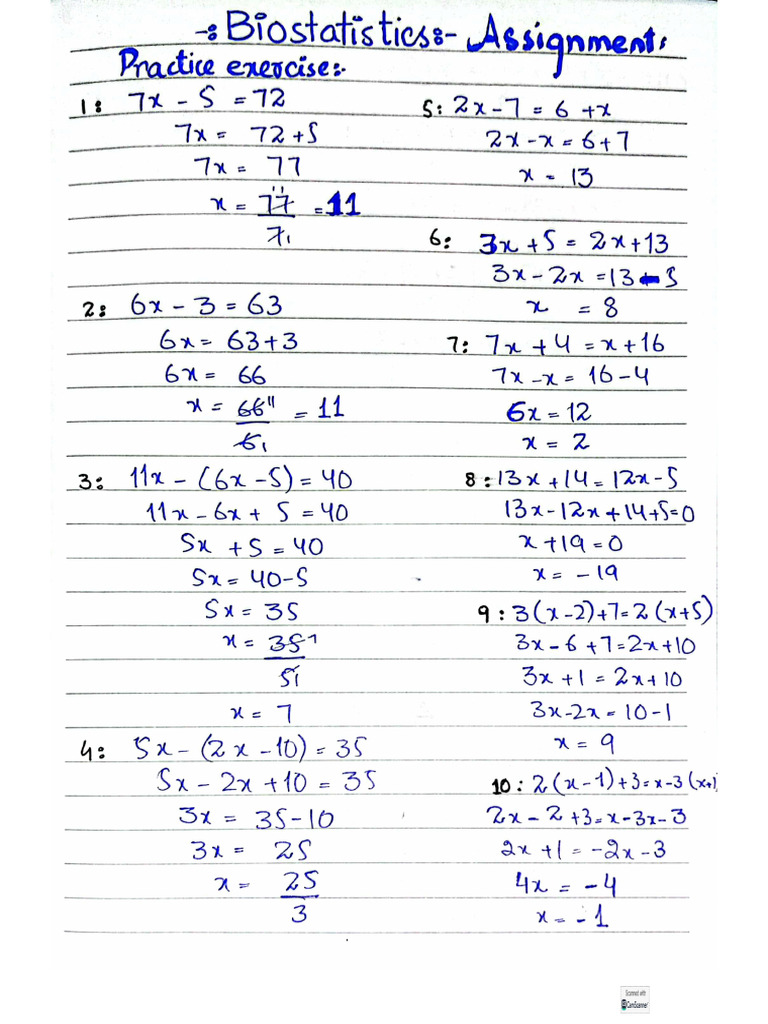 -: Biostatistics:- Assignment.
Practice exercise:-
1: 7x - 5 = 72
7x = 72+5
7x = 77
x = 77 11
= 11
7 1
2: 6x - 3 = 63
6x = 63+3
6x = 66
x = 66 11 = 11
6 1
3: 11x - (6x - 5) = 40
11x - 6x + 5 = 40
5x + 5 = 40
5x = 40-5
5x = 35
x = 35 7
5 1
x = 7
4: 5x - (2x - 10) = 35
5x - 2x + 10 = 35
3x = 35-10
3x = 25
x = 25
3
5: 2x - 7 = 6 + x
2x - x = 6+7
x = 13
6: 3x + 5 = 2x + 13
3x - 2x = 13 - 5
x = 8
7: 7x + 4 = x + 16
7x - x = 16 - 4
6x = 12
x = 2
8: 13x + 14 = 12x - 5
13x - 12x + 14 + 5 = 0
x + 19 = 0
x = - 19
9: 3(x-2)+7=2(x+5)
3x - 6 + 7 = 2x + 10
3x + 1 = 2x + 10
3x - 2x = 10 - 1
x = 9
10: 2(x-1)+3=x-3(x+1)
2x - 2 + 3 = x - 3x - 3
2x + 1 = -2x - 3
4x = - 4
x = - 1
Scanned with
CS CamScanner